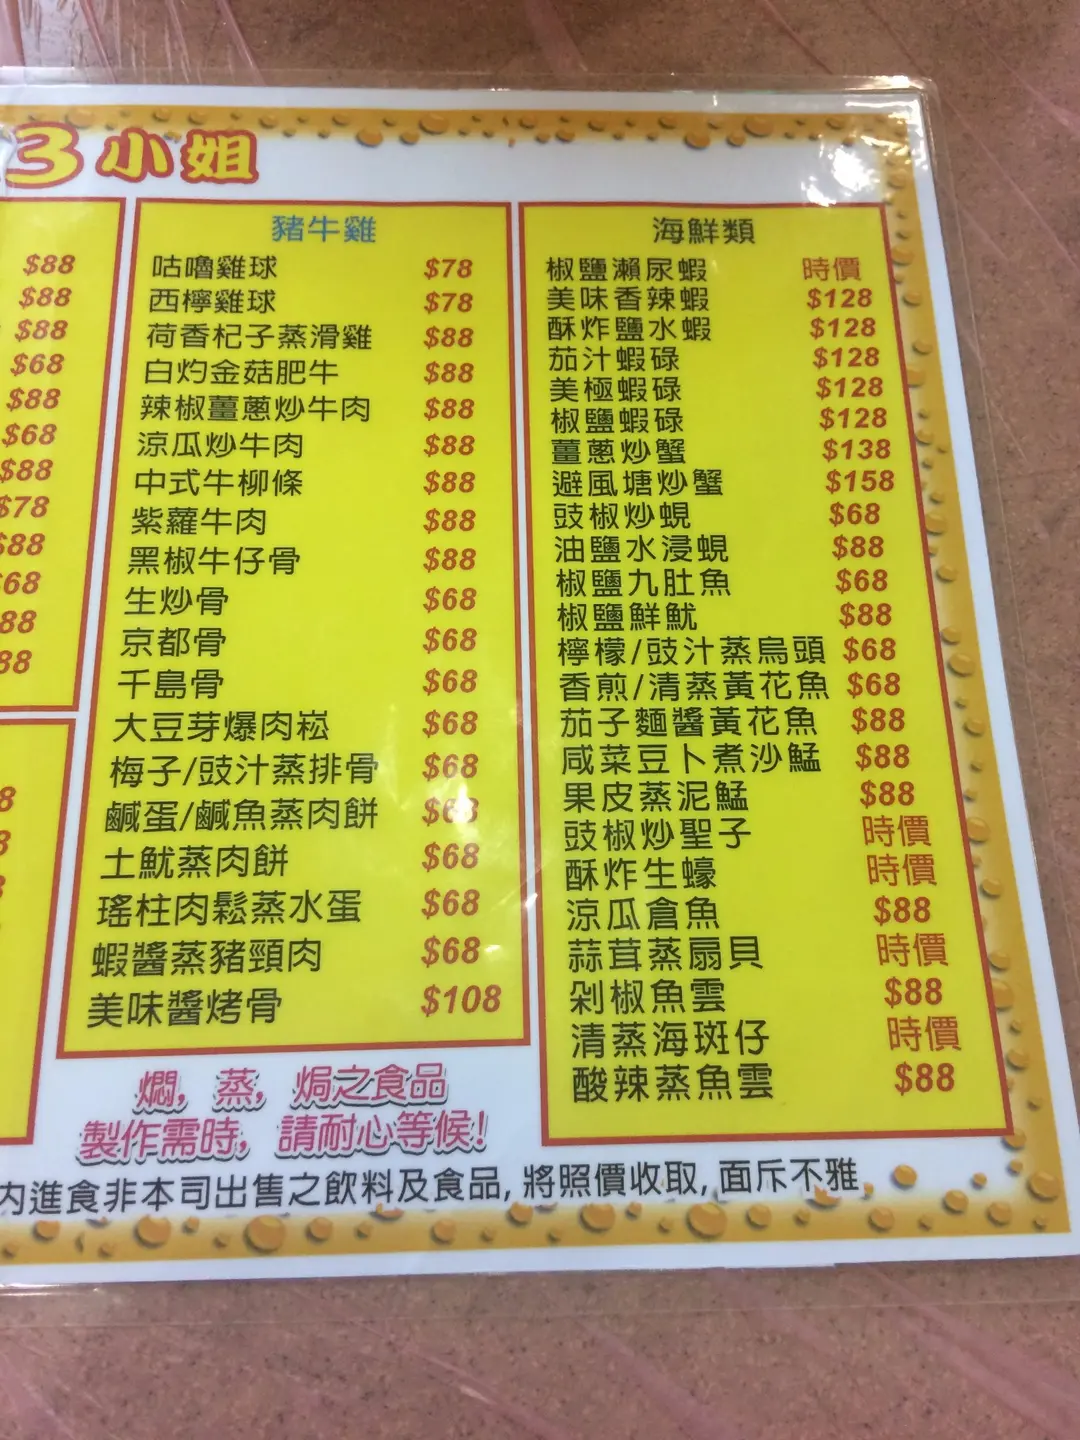 3小姐
$88
$88
$88
$68
$88
$68
$88
$78
$88
68
88
88
8
豬牛雞
咕嚕雞球 $78
西檸雞球 $78
荷香杞子蒸滑雞 $88
白灼金菇肥牛 $88
辣椒薑蔥炒牛肉 $88
涼瓜炒牛肉 $88
中式牛柳條 $88
紫蘿牛肉 $88
黑椒牛仔骨 $88
生炒骨 $68
京都骨 $68
千島骨 $68
大豆芽爆肉崧 $68
梅子/豉汁蒸排骨 $68
鹹蛋/鹹魚蒸肉餅 $68
土魷蒸肉餅 $68
瑤柱肉鬆蒸水蛋 $68
蝦醬蒸豬頸肉 $68
美味醬烤骨 $108
海鮮類
椒鹽瀨尿蝦 時價
美味香辣蝦 $128
酥炸鹽水蝦 $128
茄汁蝦碌 $128
美極蝦碌 $128
椒鹽蝦碌 $128
薑蔥炒蟹 $138
避風塘炒蟹 $158
豉椒炒蜆 $68
油鹽水浸蜆 $88
椒鹽九肚魚 $68
椒鹽鮮魷 $88
檸檬/豉汁蒸烏頭 $68
香煎/清蒸黃花魚 $68
茄子麵醬黃花魚 $88
咸菜豆卜煮沙鯭 $88
果皮蒸泥鯭 $88
豉椒炒聖子 時價
酥炸生蠔 時價
涼瓜倉魚 $88
蒜茸蒸扇貝 時價
剁椒魚雲 $88
清蒸海斑仔 時價
酸辣蒸魚雲 $88
燜, 蒸, 焗之食品
製作需時, 請耐心等候!
內進食非本司出售之飲料及食品, 將照價收取, 面斥不雅